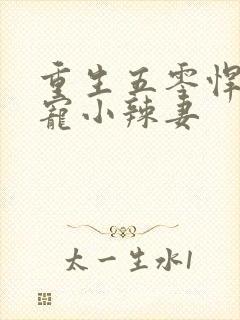 重生五零悍
寵小辣妻
太一生水1